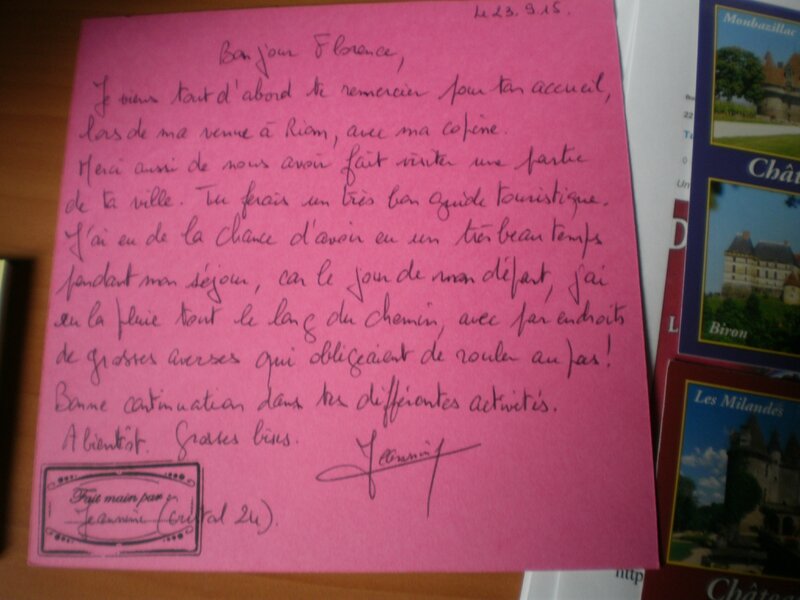 Le 23.9.15.
Bonjour Florence,
Je viens tout d'abord te remercier pour ton accueil,
lors de ma venue à Riom, avec ma copine.
Merci aussi de nous avoir fait visiter une partie
de ta ville. Tu ferais un très bon guide touristique.
J'ai eu de la chance d'avoir eu un très beau temps
pendant mon séjour, car le jour de mon départ, j'ai
eu la pluie tout le long du chemin, avec par endroits
de grosses averses qui obligeaient de rouler au pas!
Bonne continuation dans tes différentes activités.
A bientôt. Grosses bises.
Jeannine
Fait main par
Jeannine (cristal 24).
Monbazillac
Chât
Biron
Les Milandes
Châtea
http